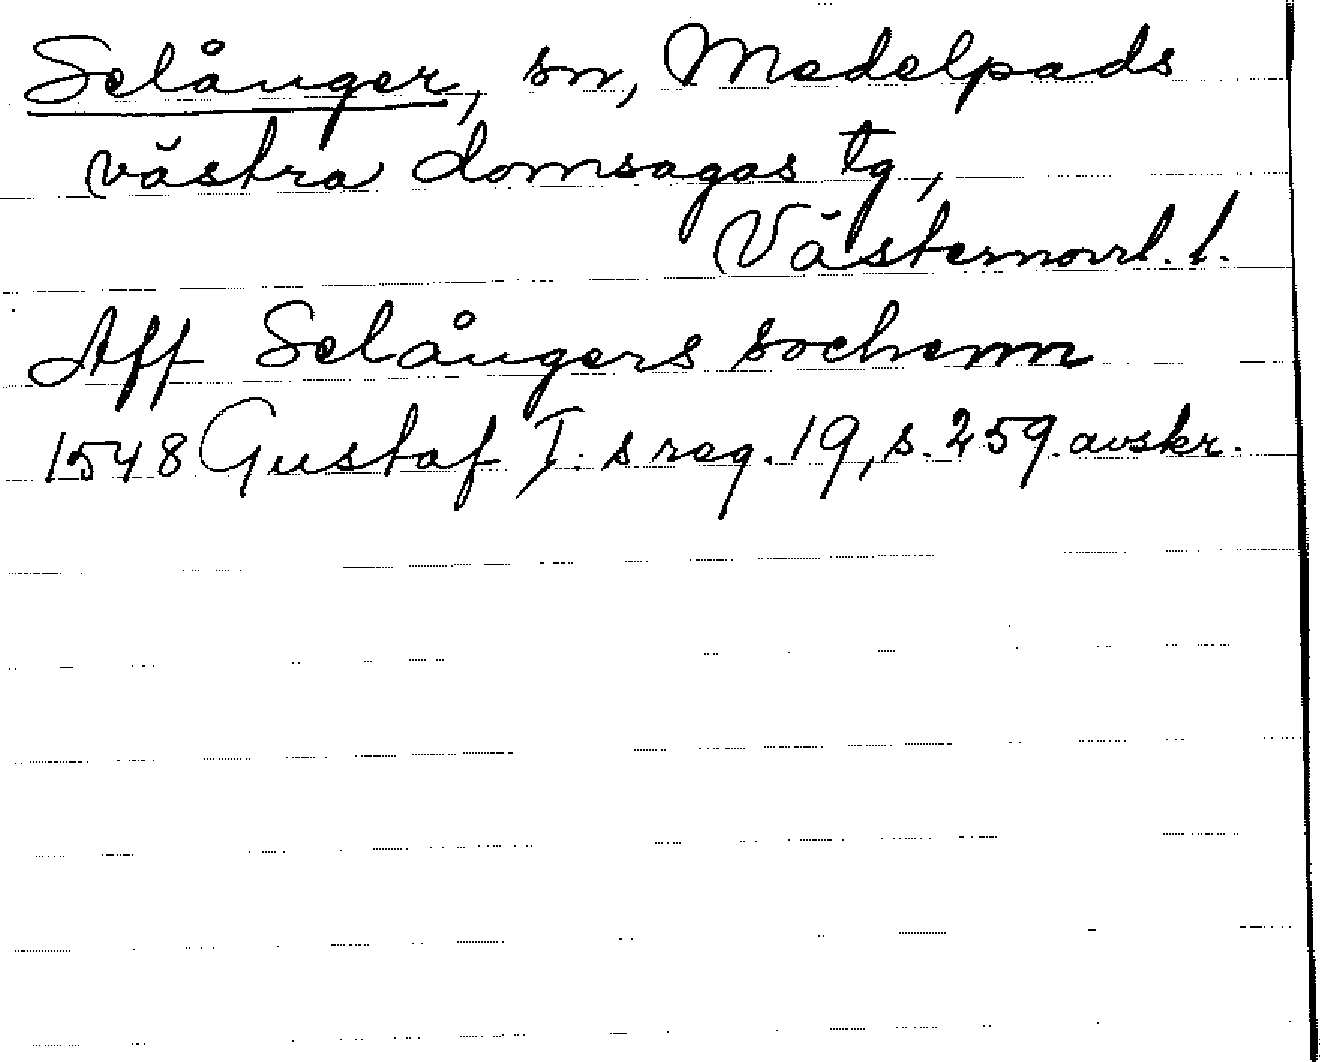 Selånger, sn, Medelpads
västra domsagas tg,
Västernorrl. l.
Aff Selångers sochenn
1548 Gustaf I:s reg. 19, s. 259. avskr.